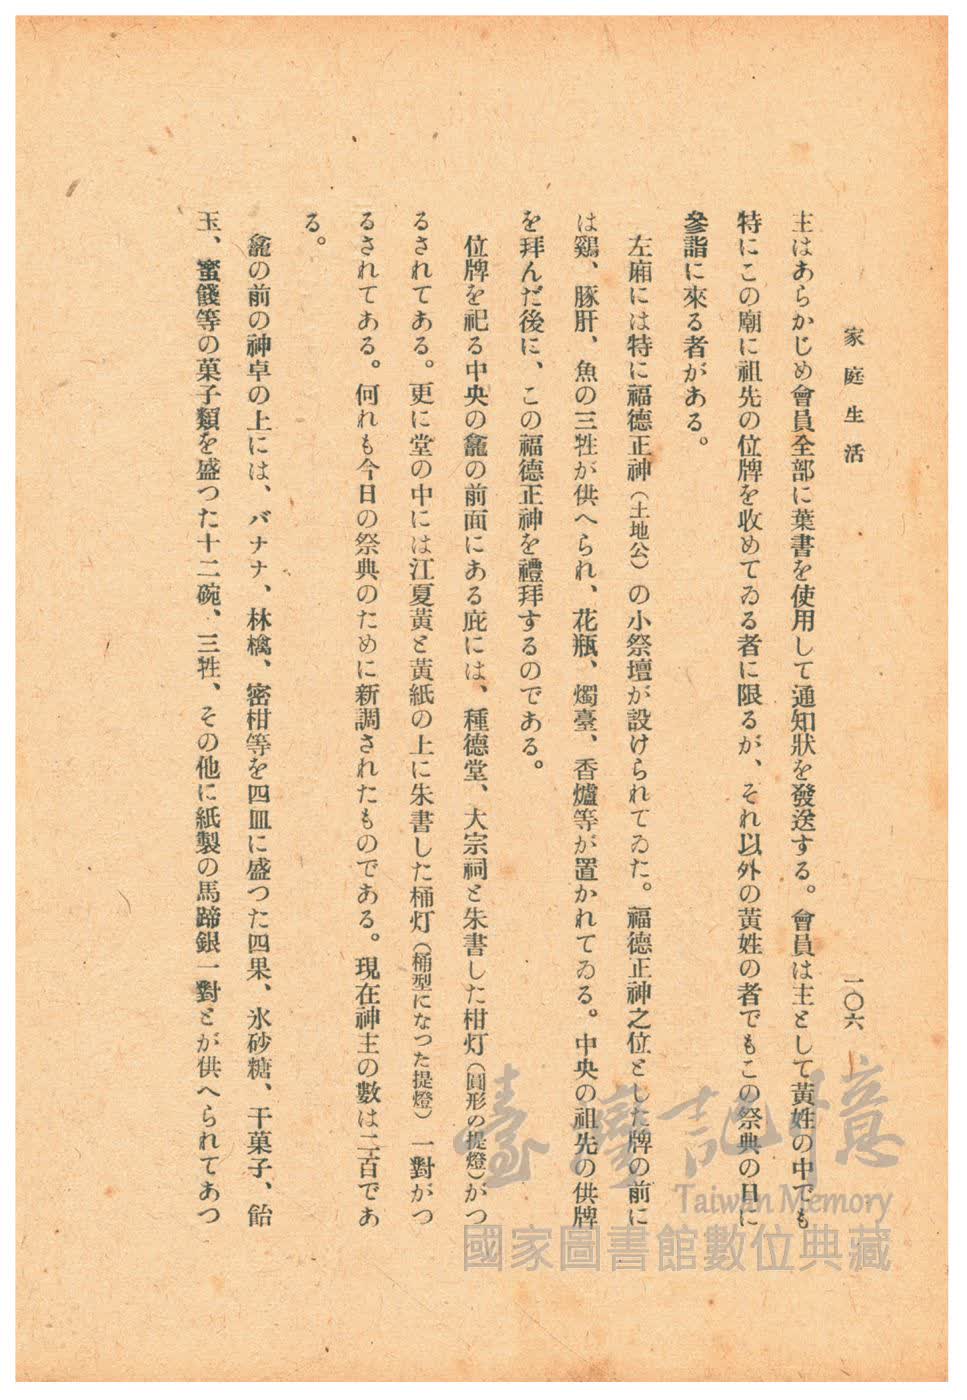 家庭生活
一〇六
主はあらかじめ會員全部に葉書を使用して通知狀を發送する。會員は主として黃姓の中でも
特にこの廟に祖先の位牌を收めてゐる者に限るが、それ以外の黃姓の者でもこの祭典の日に
參詣に來る者がある。
左廂には特に福德正神（土地公）の小祭壇が設けられてゐた。福德正神之位とした牌の前に
は鷄、豚肝、魚の三牲が供へられ、花瓶、燭臺、香爐等が置かれてゐる。中央の祖先の供牌
を拜んだ後に、この福德正神を禮拜するのである。
位牌を祀る中央の龕の前面にある庇には、種德堂、大宗祠と朱書した柑灯（圓形の提燈）がつ
るされてある。更に堂の中には江夏黃と黃紙の上に朱書した桶灯（桶型になつた提燈）一對がつ
るされてある。何れも今日の祭典のために新調されたものである。現在神主の數は二百であ
る。
龕の前の神卓の上には、バナナ、林檎、密柑等を四皿に盛つた四果、氷砂糖、干菓子、飴
玉、蜜餞等の菓子類を盛つた十二碗、三牲、その他に紙製の馬蹄銀一對とが供へられてあつ
臺灣記憶
Taiwan Memory
國家圖書館數位典藏